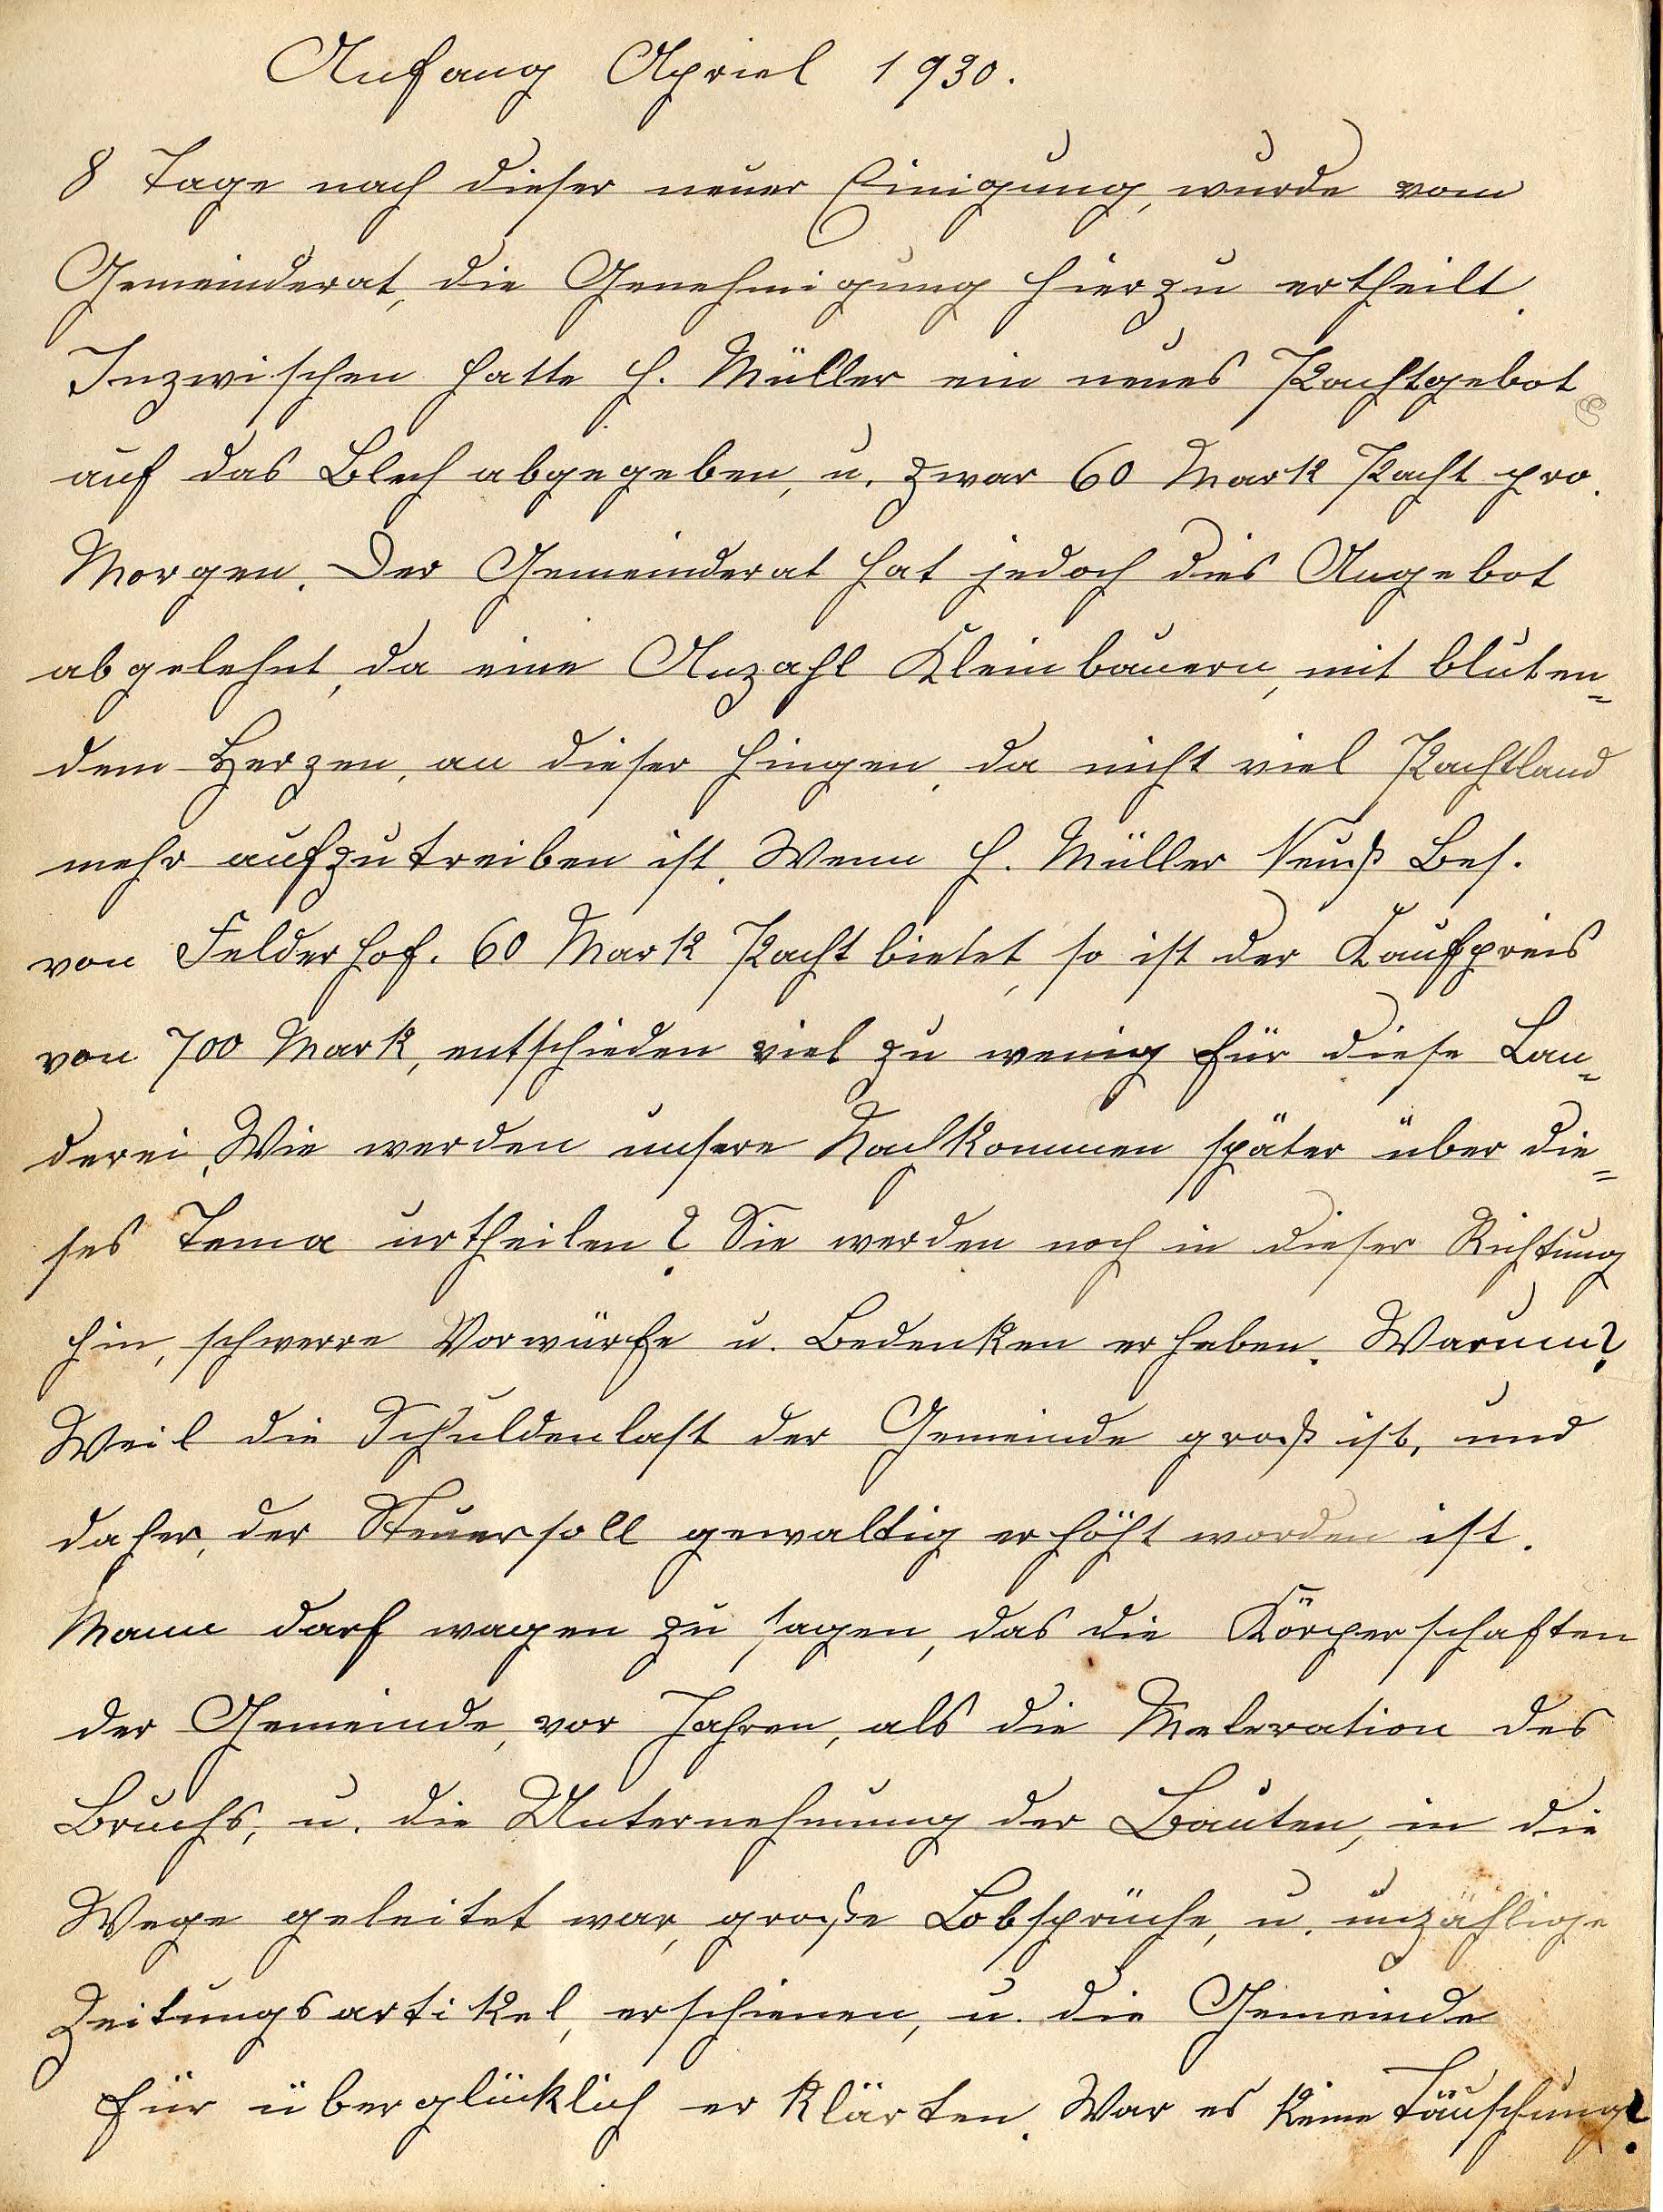 Anfang Apriel 1930.
8 Tage nach dieser neuer Einigung, wurde vom
Gemeinderat, die Genehmigung hierzu ertheilt.
Inzwischen hatte H. Müller ein neues Pachtgebot
auf das Blech abgegeben, u. zwar 60 Mark Pacht pro.
Morgen. Der Gemeinderat hat jedoch dies Angebot
abgelehnt, da eine Anzahl Kleinbauern, mit bluten=
dem Herzen, an dieser hingen, da nicht viel Pachtland
mehr aufzutreiben ist. Wenn H. Müller Neuß Bes.
von Felderhof. 60 Mark Pacht bietet, so ist der Kaufpreis
von 700 Mark, entschieden viel zu wenig für diese Län=
derei. Wie werden unsere Nachkommen später über die=
ses Tema urtheilen? Sie werden noch in dieser Richtung
hin, schwerre Vorwürfe u. Bedenken erheben. Warum?
Weil die Schuldenlast der Gemeinde groß ist, und
daher, der Steuersoll gewaltig erhöht worden ist.
Mann darf wagen zu sagen, das die Körperschaften
der Gemeinde, vor Jahren, als die Meleration des
Bruchs, u. die Unternehmung der Bauten, in die
Wege geleitet war, große Lobsprüche, u. unzählige
Zeitungsartikel, erschienen, u. die Gemeinde
für überglücklich erklärten. War es keine Täuschung?